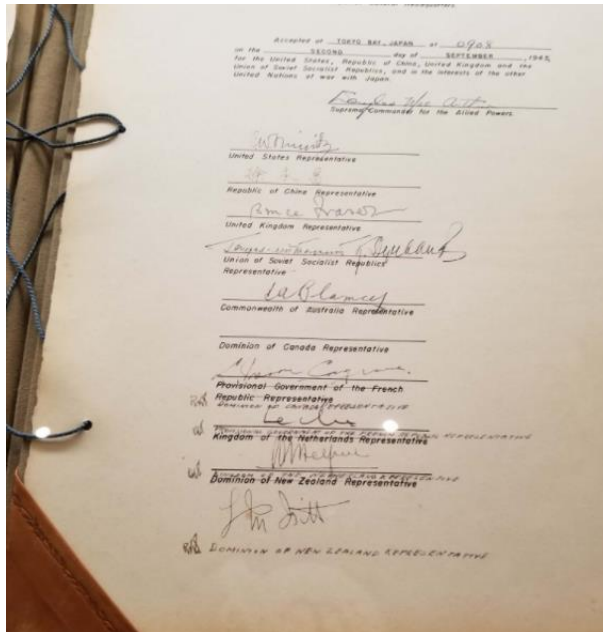 Accepted at TOKYO BAY, JAPAN at 0908
on the SECOND day of SEPTEMBER, 1945,
for the United States, Republic of China, United Kingdom and the
Union of Soviet Socialist Republics, and in the interests of the other
United Nations at war with Japan.
Douglas MacArthur
Supreme Commander for the Allied Powers.
C.W. Nimitz
United States Representative
徐永昌
Republic of China Representative
Bruce Fraser
United Kingdom Representative
Union of Soviet Socialist Republics
Representative
T.A. Blamey
Commonwealth of Australia Representative
Dominion of Canada Representative
L. Moore Cosgrave
Provisional Government of the French
Republic Representative
DOMINION OF CANADA REPRESENTATIVE
Leclerc
PROVISIONAL GOVERNMENT OF THE FRENCH REPUBLIC REPRESENTATIVE
Kingdom of the Netherlands Representative
Helfrich
KINGDOM OF THE NETHERLANDS REPRESENTATIVE
Dominion of New Zealand Representative
L M Isitt
DOMINION OF NEW ZEALAND REPRESENTATIVE